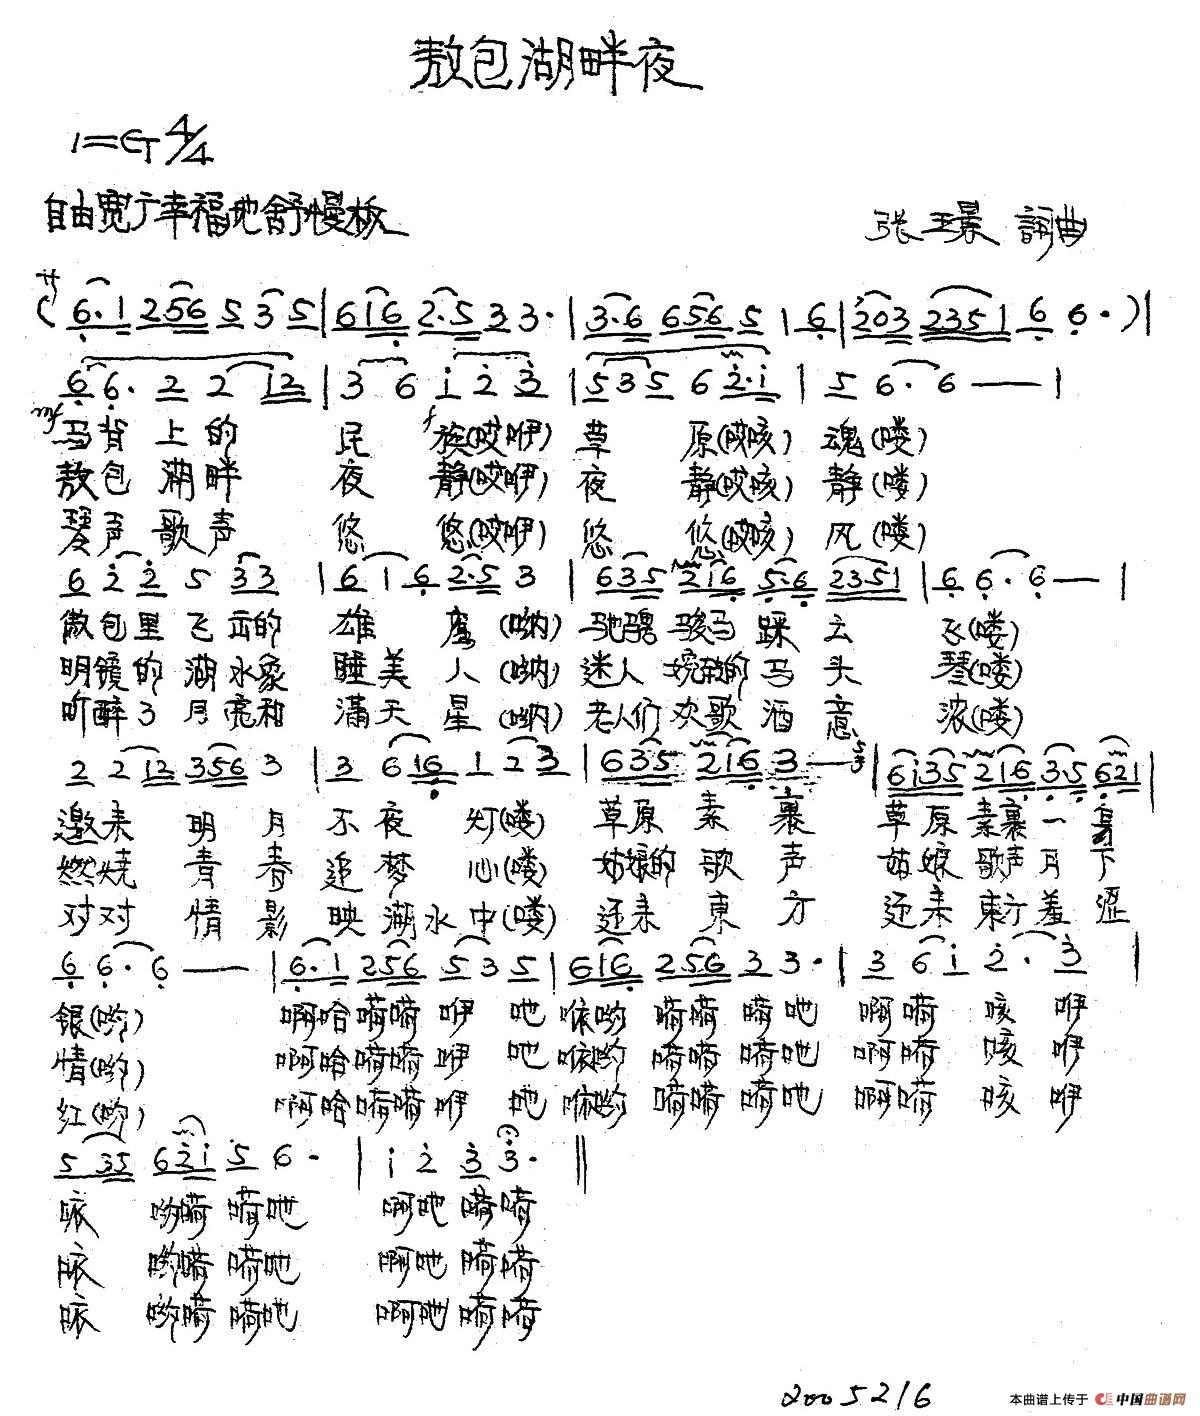 敖包湖畔夜
1=G 4/4
自由宽广幸福地舒慢板
张王景 詞曲
(6·1 256 5 3 5 | 616 2·5 3 3· | 3·6 656 5 1 6 | 203 2351 6 6·)|
6 6· 2 2 12 | 3 6 i 2 3 | 535 6 2·i | 5 6·6 —— |
mf 马背上的 民 f 族(哎咿) 草 原(哎咳) 魂(喽)
敖包湖畔 夜 静(哎咿) 夜 静(哎咳) 静(喽)
琴声歌声 悠 悠(哎咿) 悠 悠(哎咳) 风(喽)
6 2 2 5 33 | 6 1 6 2·5 3 | 635 216 5·6 2351 | 6 6·6 — |
傲包里飞出的 雄 鹰(呐) 驰骋骏马踩云 飞(喽)
明镜的湖水象 睡美人(呐) 迷人婉转的马头 琴(喽)
听醉了月亮和 满天星(呐) 老人们欢歌酒意 浓(喽)
2 2 12 356 3 | 3 6 16 1 2 3 | 635 216 3 — | 6i35 216 3·5 621 |
邀来明月不夜灯(喽) 草原素裹 草原素裹一身
燃烧青春追梦心(喽) 姑娘的歌声 姑娘歌声月下
对对情影映湖水中(喽) 还未東方 还未東方羞涩
6 6·6 —— | 6·1 256 5 3 5 | 616 256 3 3· | 3 6 i 2· 3 |
银(哟) 啊哈嗬嗬咿吔 咴哟嗬嗬嗬吔 啊嗬咳咿
情(哟) 啊哈嗬嗬咿吔 咴哟嗬嗬嗬吔 啊嗬咳咿
红(哟) 啊哈嗬嗬咿吔 咴哟嗬嗬嗬吔 啊嗬咳咿
5 35 62i 5 6· | i 2 3 3· ‖
咳 哟嗬嗬吔 啊吔嗬嗬
咳 哟嗬嗬吔 啊吔嗬嗬
咳 哟嗬嗬吔 啊吔嗬嗬
2005216
本曲谱上传于 中国曲谱网